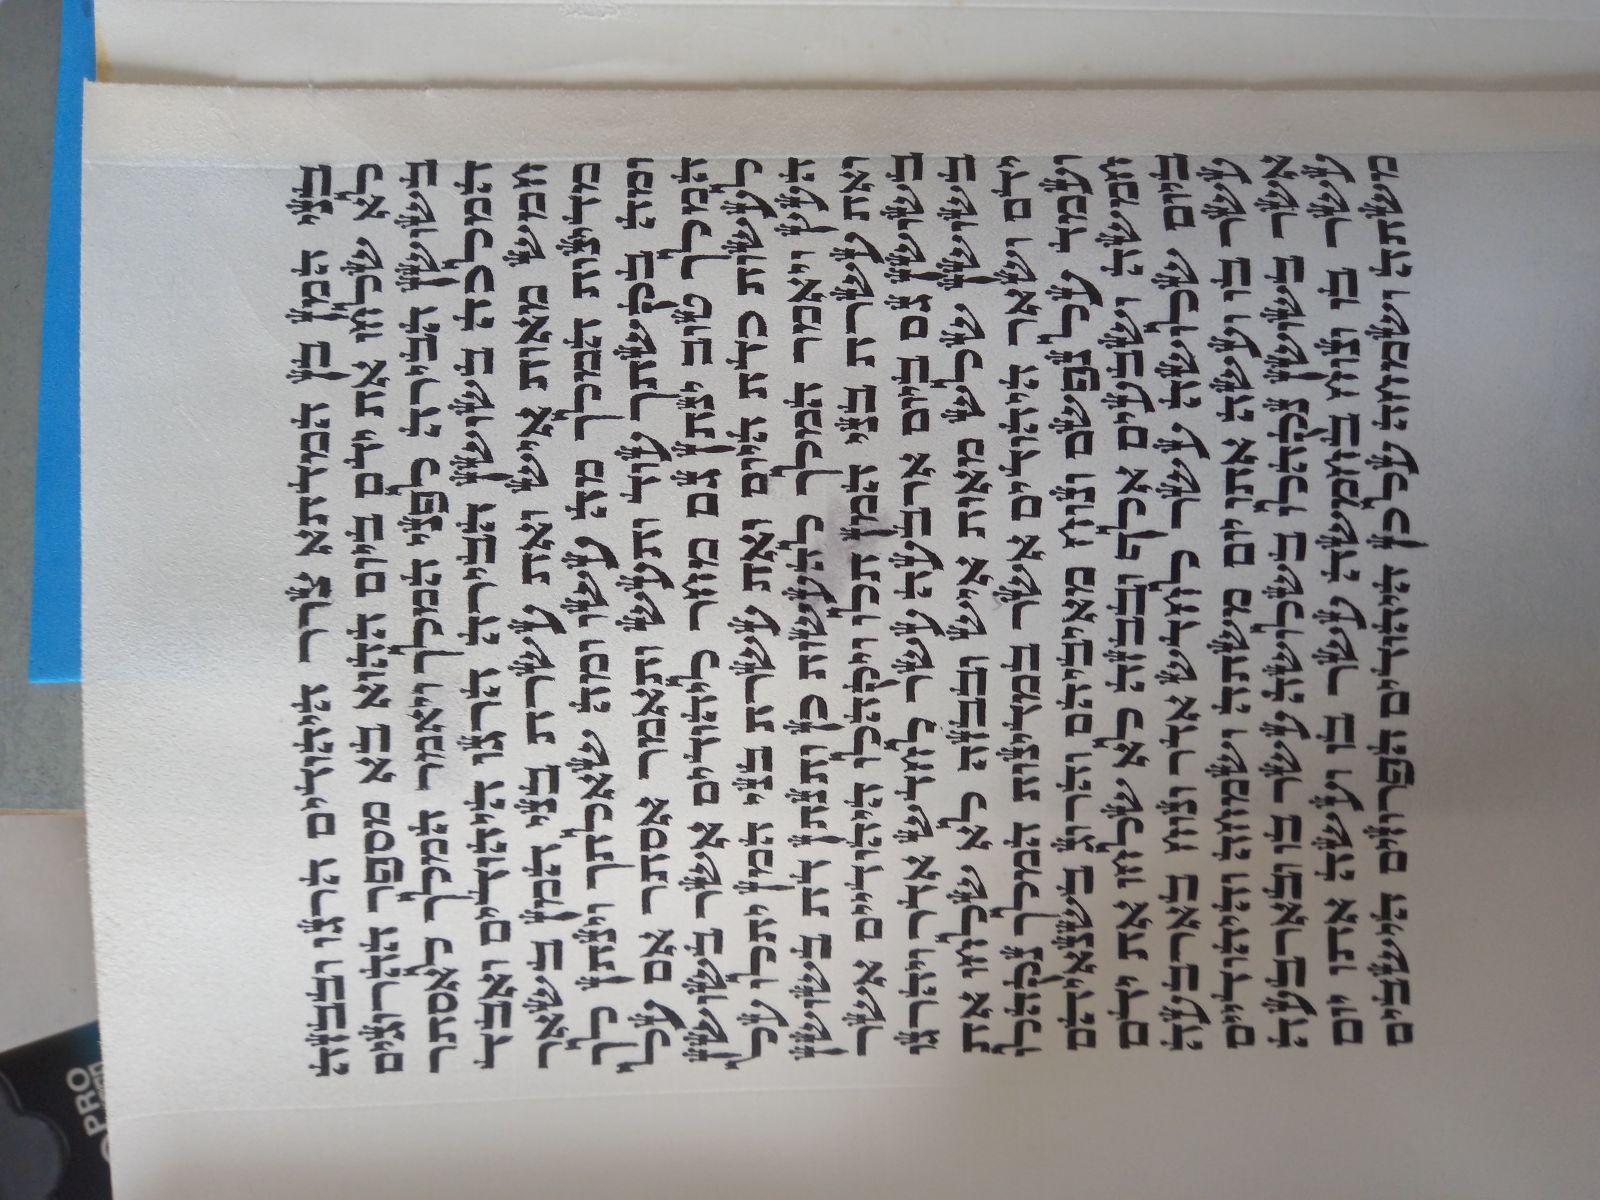 בני המן בן המדתא צרר היהודים הרגו ובבזה
לא שלחו את ידם ביום ההוא בא מספר ההרוגים
בשושן הבירה לפני המלך ויאמר המלך לאסתר
המלכה בשושן הבירה הרגו היהודים ואבד
חמש מאות איש ואת עשרת בני המן בשאר
מדינות המלך מה עשו ומה שאלתך וינתן לך
ומה בקשתך עוד ותעש ותאמר אסתר אם על
המלך טוב ינתן גם מחר ליהודים אשר בשושן
לעשות כדת היום ואת עשרת בני המן יתלו על
העץ ויאמר המלך להעשות כן ותנתן דת בשושן
ואת עשרת בני המן תלו ויקהלו היהודיים אשר
בשושן גם ביום ארבעה עשר לחדש אדר ויהרגו
בשושן שלש מאות איש ובבזה לא שלחו את
ידם ושאר היהודים אשר במדינות המלך נקהלו
ועמד על נפשם ונוח מאיביהם והרוג בשנאיהם
חמשה ושבעים אלף ובבזה לא שלחו את ידם
ביום שלושה עשר לחדש אדר ונוח בארבעה
עשר בו ועשה אתו יום משתה ושמחה והיהודיים
אשר בשושן נקהלו בשלושה עשר בו ובארבעה
עשר בו ונוח בחמשה עשר בו ועשה אתו יום
משתה ושמחה על כן היהודים הפרזים הישבים
PRO